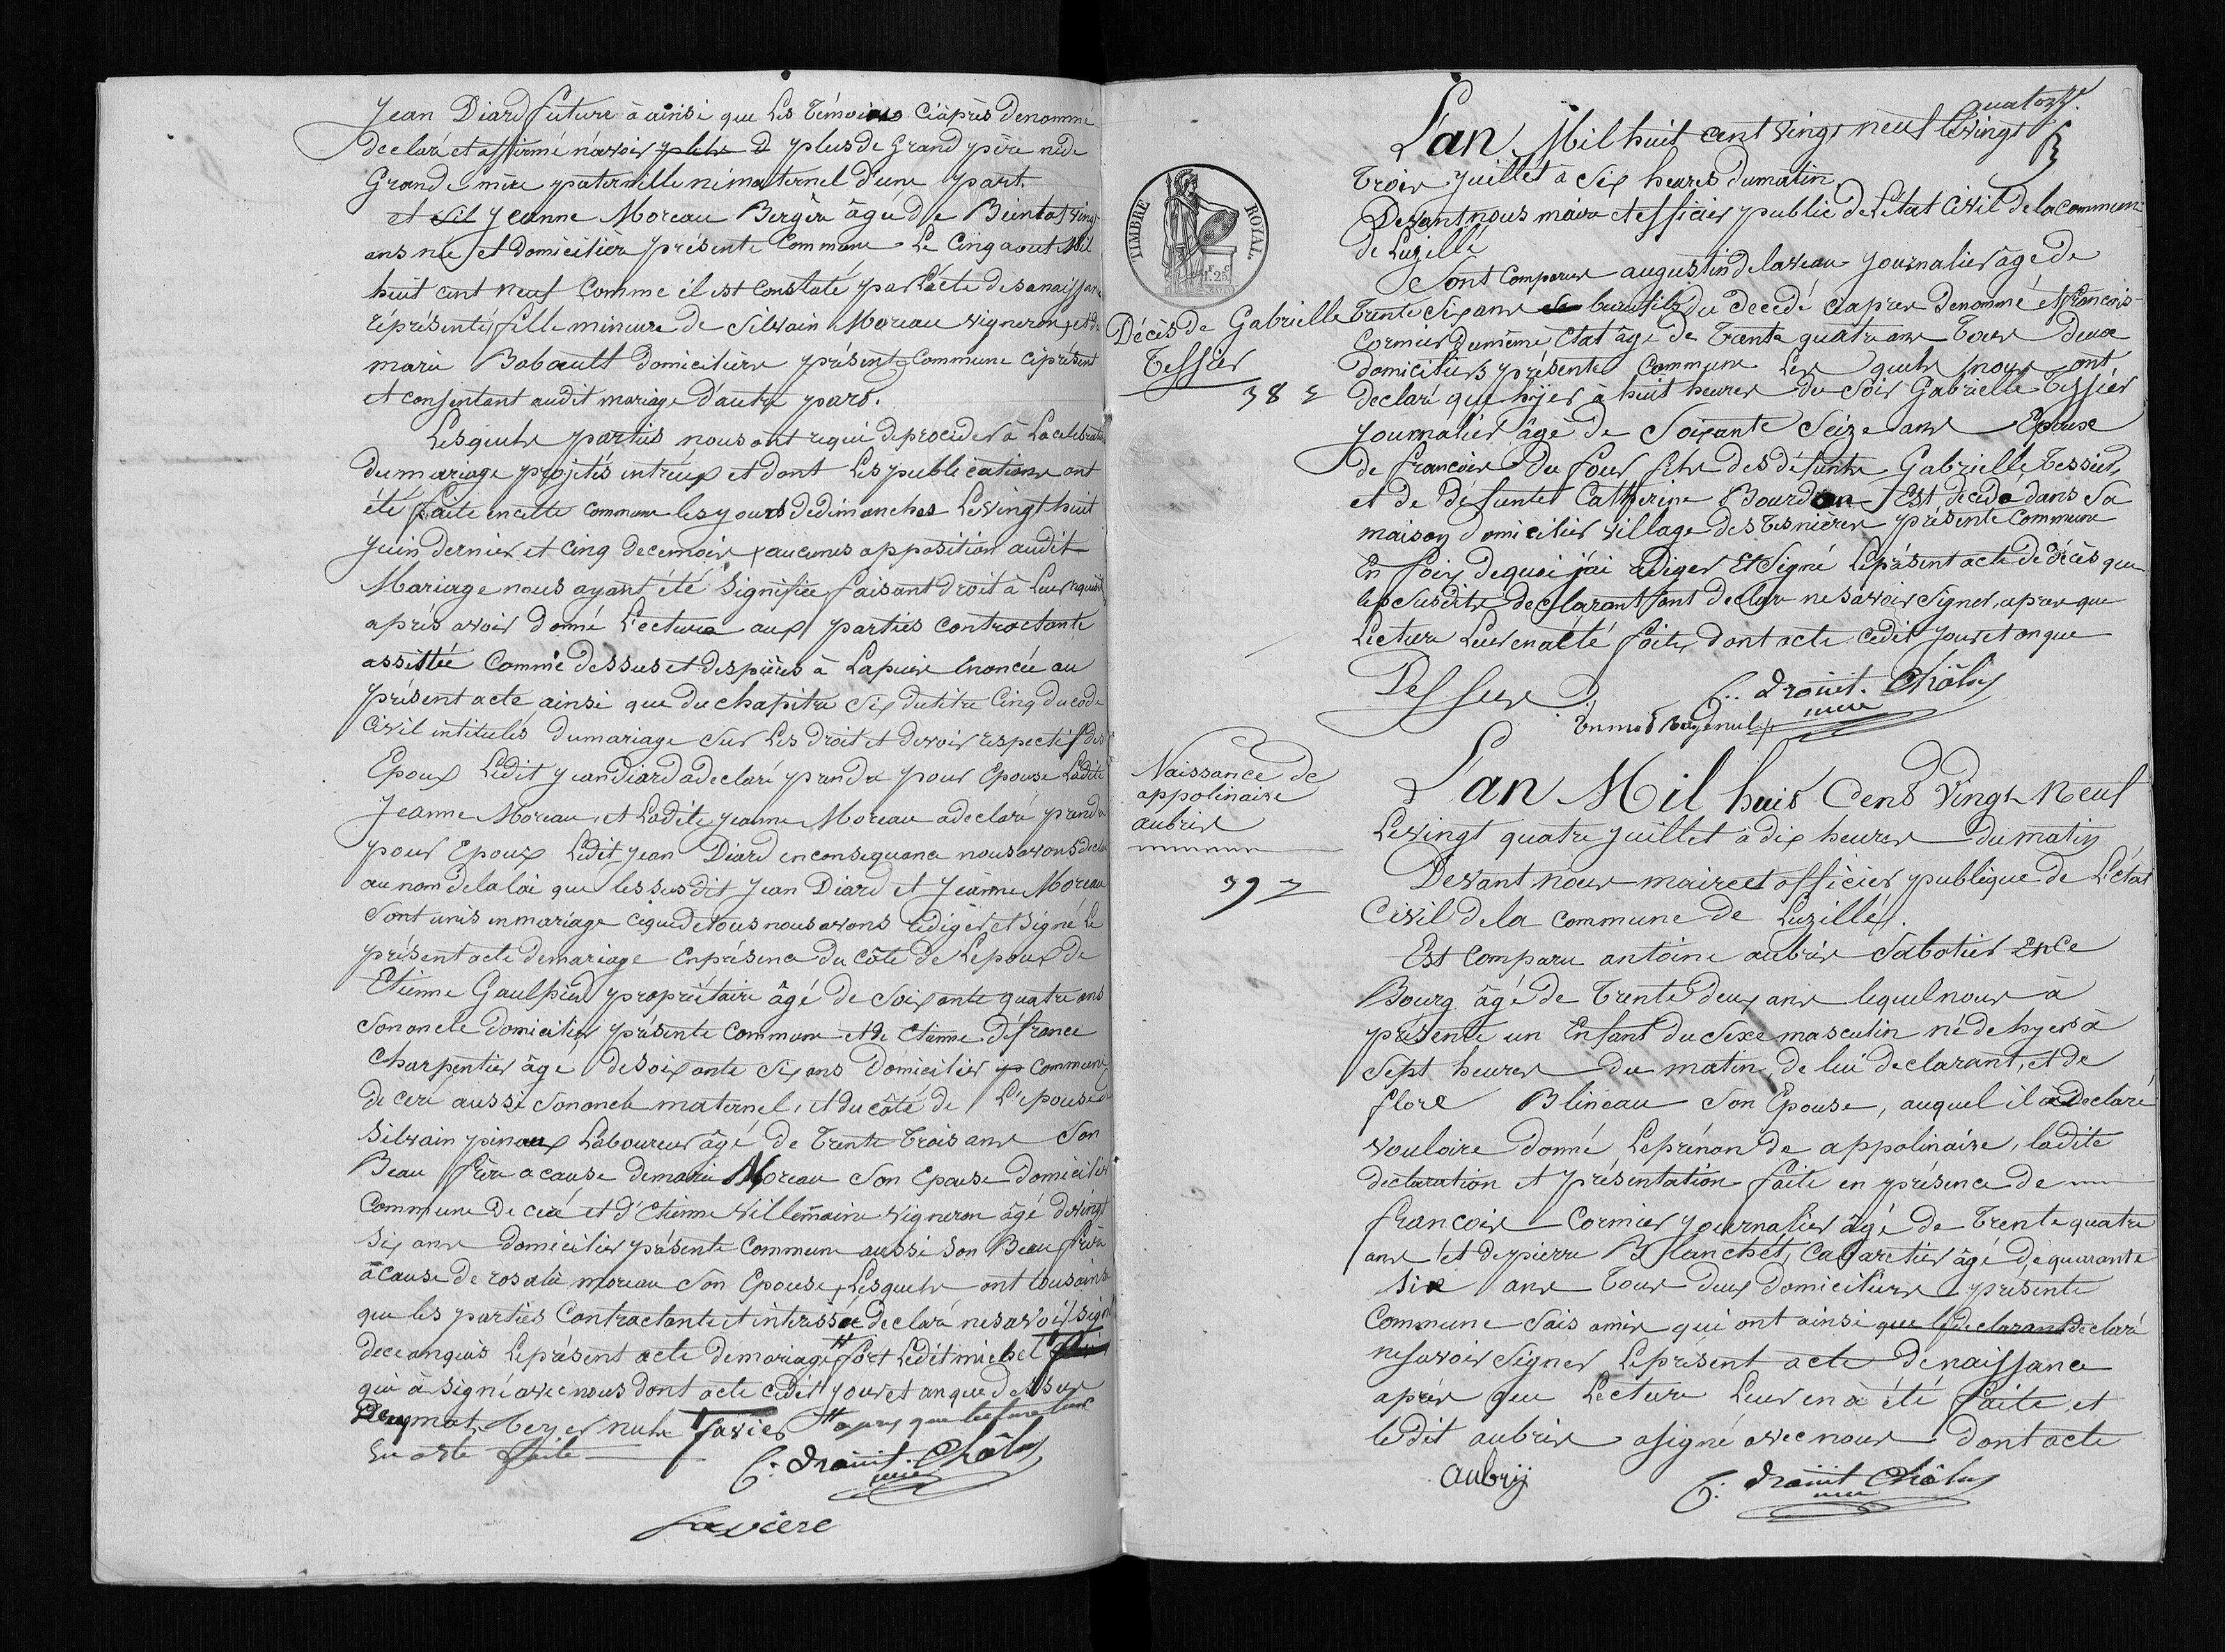 Jean Diard future à ainsi que les témoins ciàprès denommé
declaré et affirmé n'avoir plus de Grand père ni de
Grande mère paternelle ni maternel d'une part.
et Jeanne Moreau Bergère âgée de Bientot vingt
ans née et domicilière présente Commune Le Cinq aout Mil
huit cent neuf Comme il est constaté par l'acte de sa naissance
réprésenté, fille mineure de Silvain Moreau vigneron, et de
marie Bobault domicilière présente Commune ciprésent
et consentant audit mariage d'autre pars.
Lesquels parties nous ont requi de proceder à La celebration
du mariage projetés entreux et dont Les publications ont
été faite en cette commune les jours de dimanches Le vingt huit
juin dernier et cinq de ce mois, aucunes opposition audit
Mariage nous ayant été Signifiée faisant droit à Leur requisition
après avoir donné Lecture aux parties contractante
assistée Comme dessus et des pièces à Lapuire énoncée au
présent acte ainsi que du chapitre six du titre Cinq du code
Civil intitulés du mariage sur Les droit et devoir respectif des
Epoux Ledit jean diard a declaré prendre pour Epouse Ladite
Jeanne Moreau, et Ladite jeanne Moreau a declaré prendre
pour Epoux Ledit jean Diard en conséquance nous avons declaré
au nom de la loi que les susdit Jean Diard et Jeanne Moreau
Sont unis en mariage ce que de tous nous avons rédiger et signé Le
présent acte de mariage En présence du côte de Lepoux de
Etienne Gaulpied propriétaire âgé de Soixante quatre ans
Son oncle domicilier présente commune et de Etienne défrance
Charpentier âgé de soixante six ans Domicilier commune
de ceré aussi Son oncle maternel, et du côté de L'epouse de
Silvain pinaux Laboureur âgé de Trente Trois ans Son
Beau frère a cause de marie Moreau Son Epouse domicilier
Commune De ceré et d'Etienne Villemaine vigneron âgé de vingt
Six ans domicilier présente Commune aussi Son Beau frère
à cause de rosalie moreau Son Epouse, Lesquels ont tous ainsi
que les parties Contractante et interessée declaré ne savoir signé
de ce enquis le présent acte de mariage fort Ledit michel
qui à signé avec nous dont acte cedit jour et an que dessus
nuls favier après que lecture leur
en a été faite
Drouit. Châlus
maire
favière
quatorze.
L'an Mil huit cent vingt neuf le vingt
trois juillet à six heures du matin
Devant nous maire et officier public de L'etat Civil de la commune
de Luzillé
Sont Comparus augustin delaveau journalier âgé de
TIMBRE ROYAL
Décès de Gabrielle
Tessier
38
Trente six ans beaufils du decedé ciapres denommé et francois
Cormier du même Etat âgé de Trente quatre ans Tous deux
domiciliers présente Commune Les quels nous ont
declaré que hyer à huit heures du soir Gabrielle Tessier
journalier âgé de soixante Seize ans Epoux
de francoise Du four fils des défunts Gabrielle Tessier,
et de défunte Catherine Bourdon Est decedé dans Sa
maison domicilier village des Tesnières présente commune
En foix de quoi j'ai rédiger Et Signé Le présent acte de décès que
les Susdits declarant ont declaré ne savoir Signer, apres que
Lecture Leur en a été faite, dont acte cedit jour et an que
Dessus
Drouit. Châlus
maire
Naissance de
appolinaire
aubris
39
L'an Mil huit Cent Vingt Neuf
Le vingt quatre Juillet à dix heures du matin
Devant nous maire et officier publique de L'état
Civil de la commune de Luzillé.
Est Comparu antoine aubris Sabotier En ce
Bourg âgé de Trente deux ans lequel nous à
présenté un Enfant du Sexe masculin né de hyer à
Sept heures du matin, de lui declarant, et de
flore Blineau Son Epouse, auquel il à declaré
vouloire donné Le prénon de appolinaire, ladite
déclaration et présentation faite en présence de
francois Cormier journalier âgé de Trente quatre
ans et de pierre Blanchet, Cabaretier âgé de quarante
six ans Tous deux domiciliers présente
Commune Sais amis qui ont ainsi que le declarant declaré
ne savoir Signer Le présent acte de naissance
après que Lecture Leur en à été faite, et
ledit aubris a signé avec nous Dont acte
aubrij
Drouit Châlus
maire